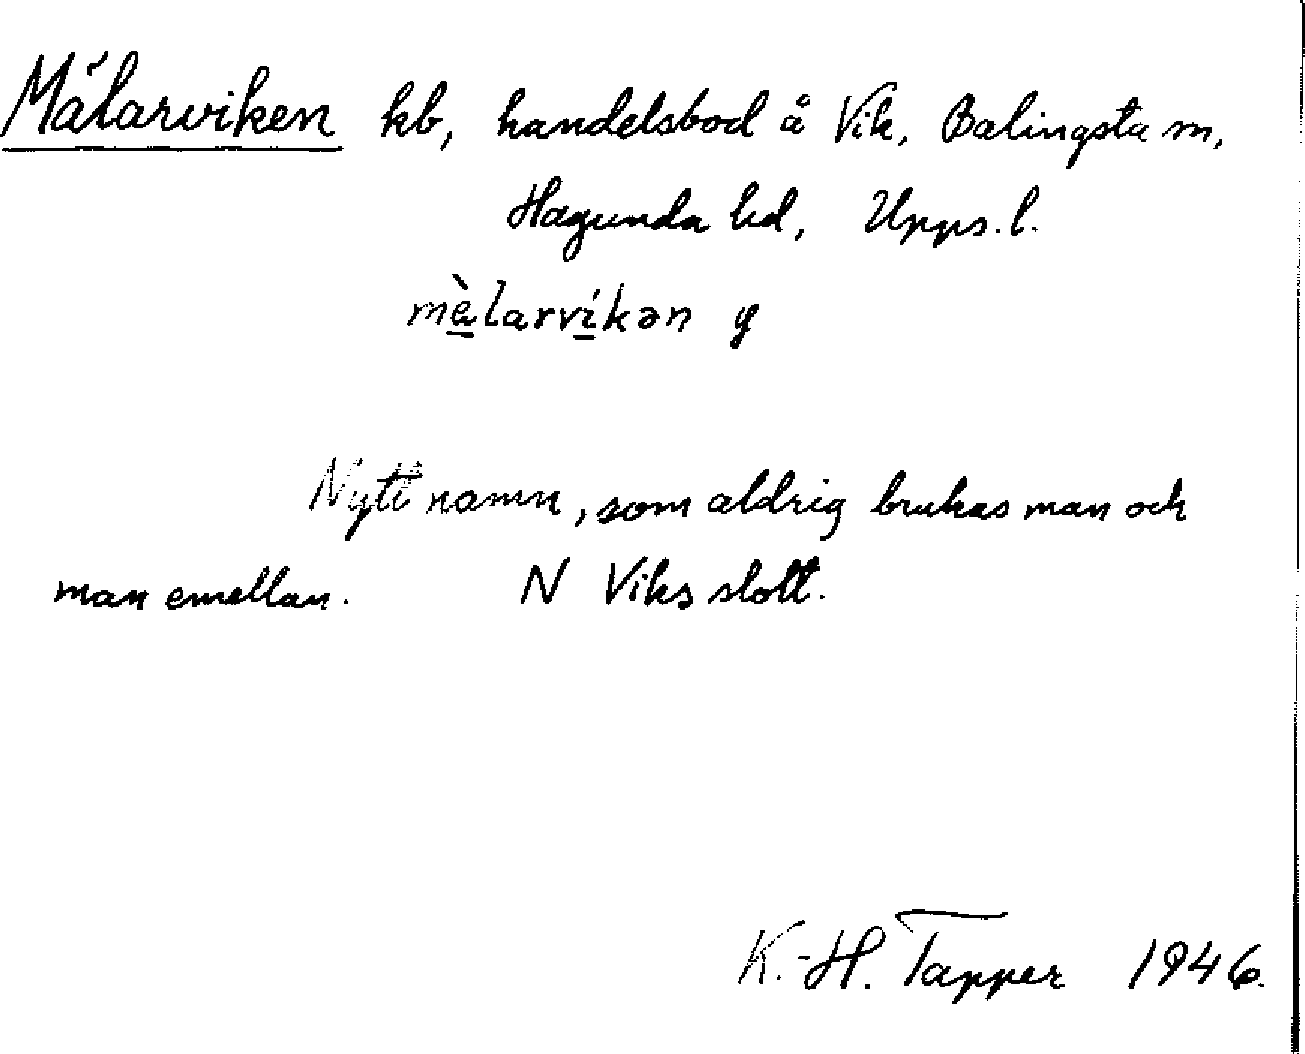 Mälarviken kb, handelsbod å Vik, Balingsta sn,
Hagunda hd, Upps. l.
mèlarvíkən y
Nytt namn, som aldrig brukas man och
man emellan. N Viks slott.
K.-H. Tapper 1946.